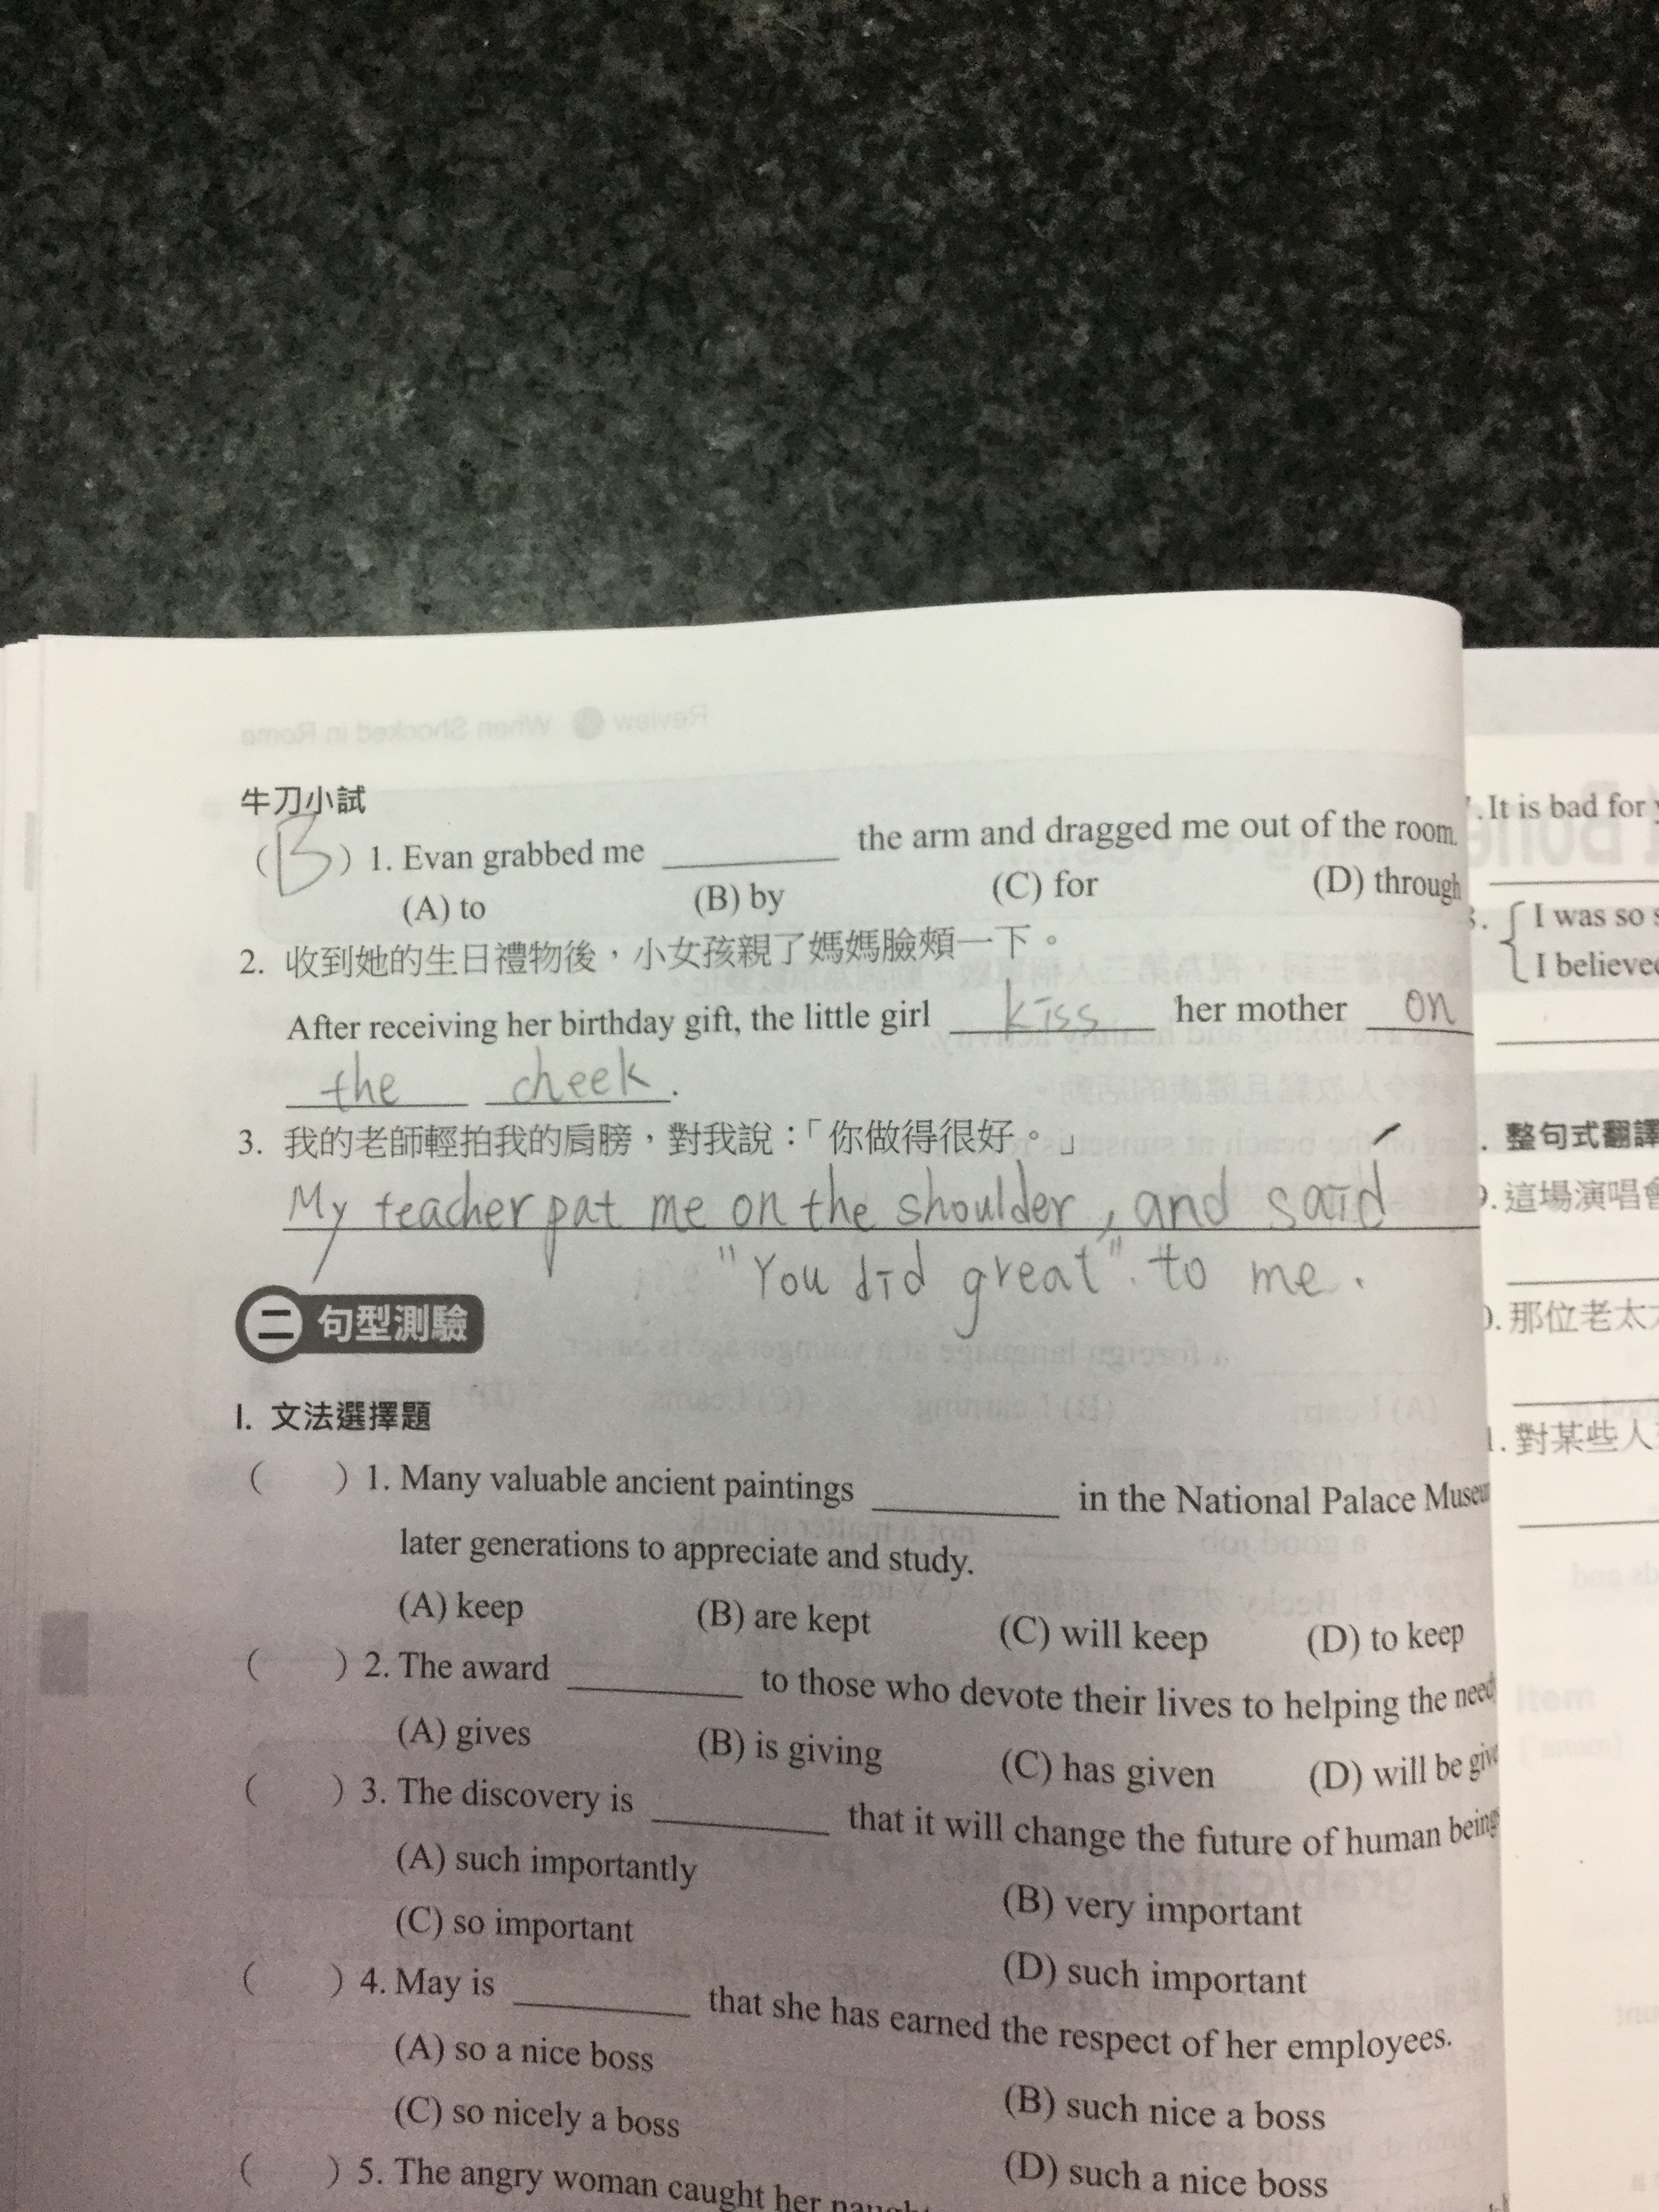 Review When Shocked in Rome
牛刀小試
( B ) 1. Evan grabbed me ________ the arm and dragged me out of the room.
(A) to (B) by (C) for (D) through
2. 收到她的生日禮物後，小女孩親了媽媽臉頰一下。
After receiving her birthday gift, the little girl kiss her mother on
the cheek.
3. 我的老師輕拍我的肩膀，對我說：「你做得很好。」
My teacher pat me on the shoulder, and said
"You did great". to me.
二 句型測驗
I. 文法選擇題
( ) 1. Many valuable ancient paintings ________ in the National Palace
later generations to appreciate and study.
(A) keep (B) are kept (C) will keep (D) to keep
( ) 2. The award ________ to those who devote their lives to helping the
(A) gives (B) is giving (C) has given (D) will be
( ) 3. The discovery is ________ that it will change the future of human
(A) such importantly (B) very important
(C) so important (D) such important
( ) 4. May is ________ that she has earned the respect of her employees.
(A) so a nice boss (B) such nice a boss
(C) so nicely a boss (D) such a nice boss
( ) 5. The angry woman caught her
. It is bad for
I was so
I believe
整句式翻譯
9. 這場演唱會
那位老太
對某些人